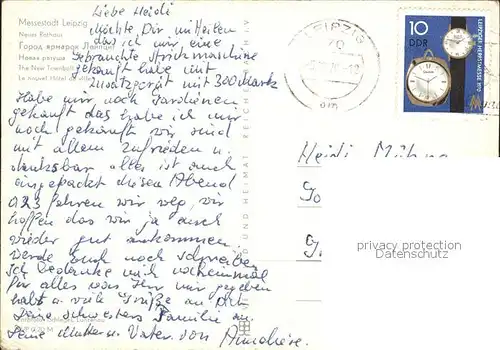 Messestadt Leipzig
Neues Rathaus
Город ярмарок Лейпциг
Новая ратуша
The New Townhall
Le nouvel Hôtel de ville
Liebe Heidi
Möchte Dir mitteilen
das ich mir eine
Gebrauchte Strickmaschine
gekauft habe mit
Zusatzgerät mit 300 Mark
Habe mir noch Gardienen
gekauft das habe ich mir
noch gekauft wir sind
mit allem zufrieden u.
dankbar alles ist auch
eingepackt diesen Abend
023 fahren wir weg, wir
hoffen das wir ja auch
wieder gut ankommen
Werde Euch noch schreiben
Ich bedanke mich nocheinmal
für alles was Ihr mir gegeben
habt u viele Grüße an Dich
Deine Schwester Familie an
Deine Mutter u. Vater von
BILD UND HEIMAT REICHENBACH
LEIPZIG
70
10
DDR
LEIPZIGER HERBSTMESSE 1970
Heidi
privacy protection
Datenschutz